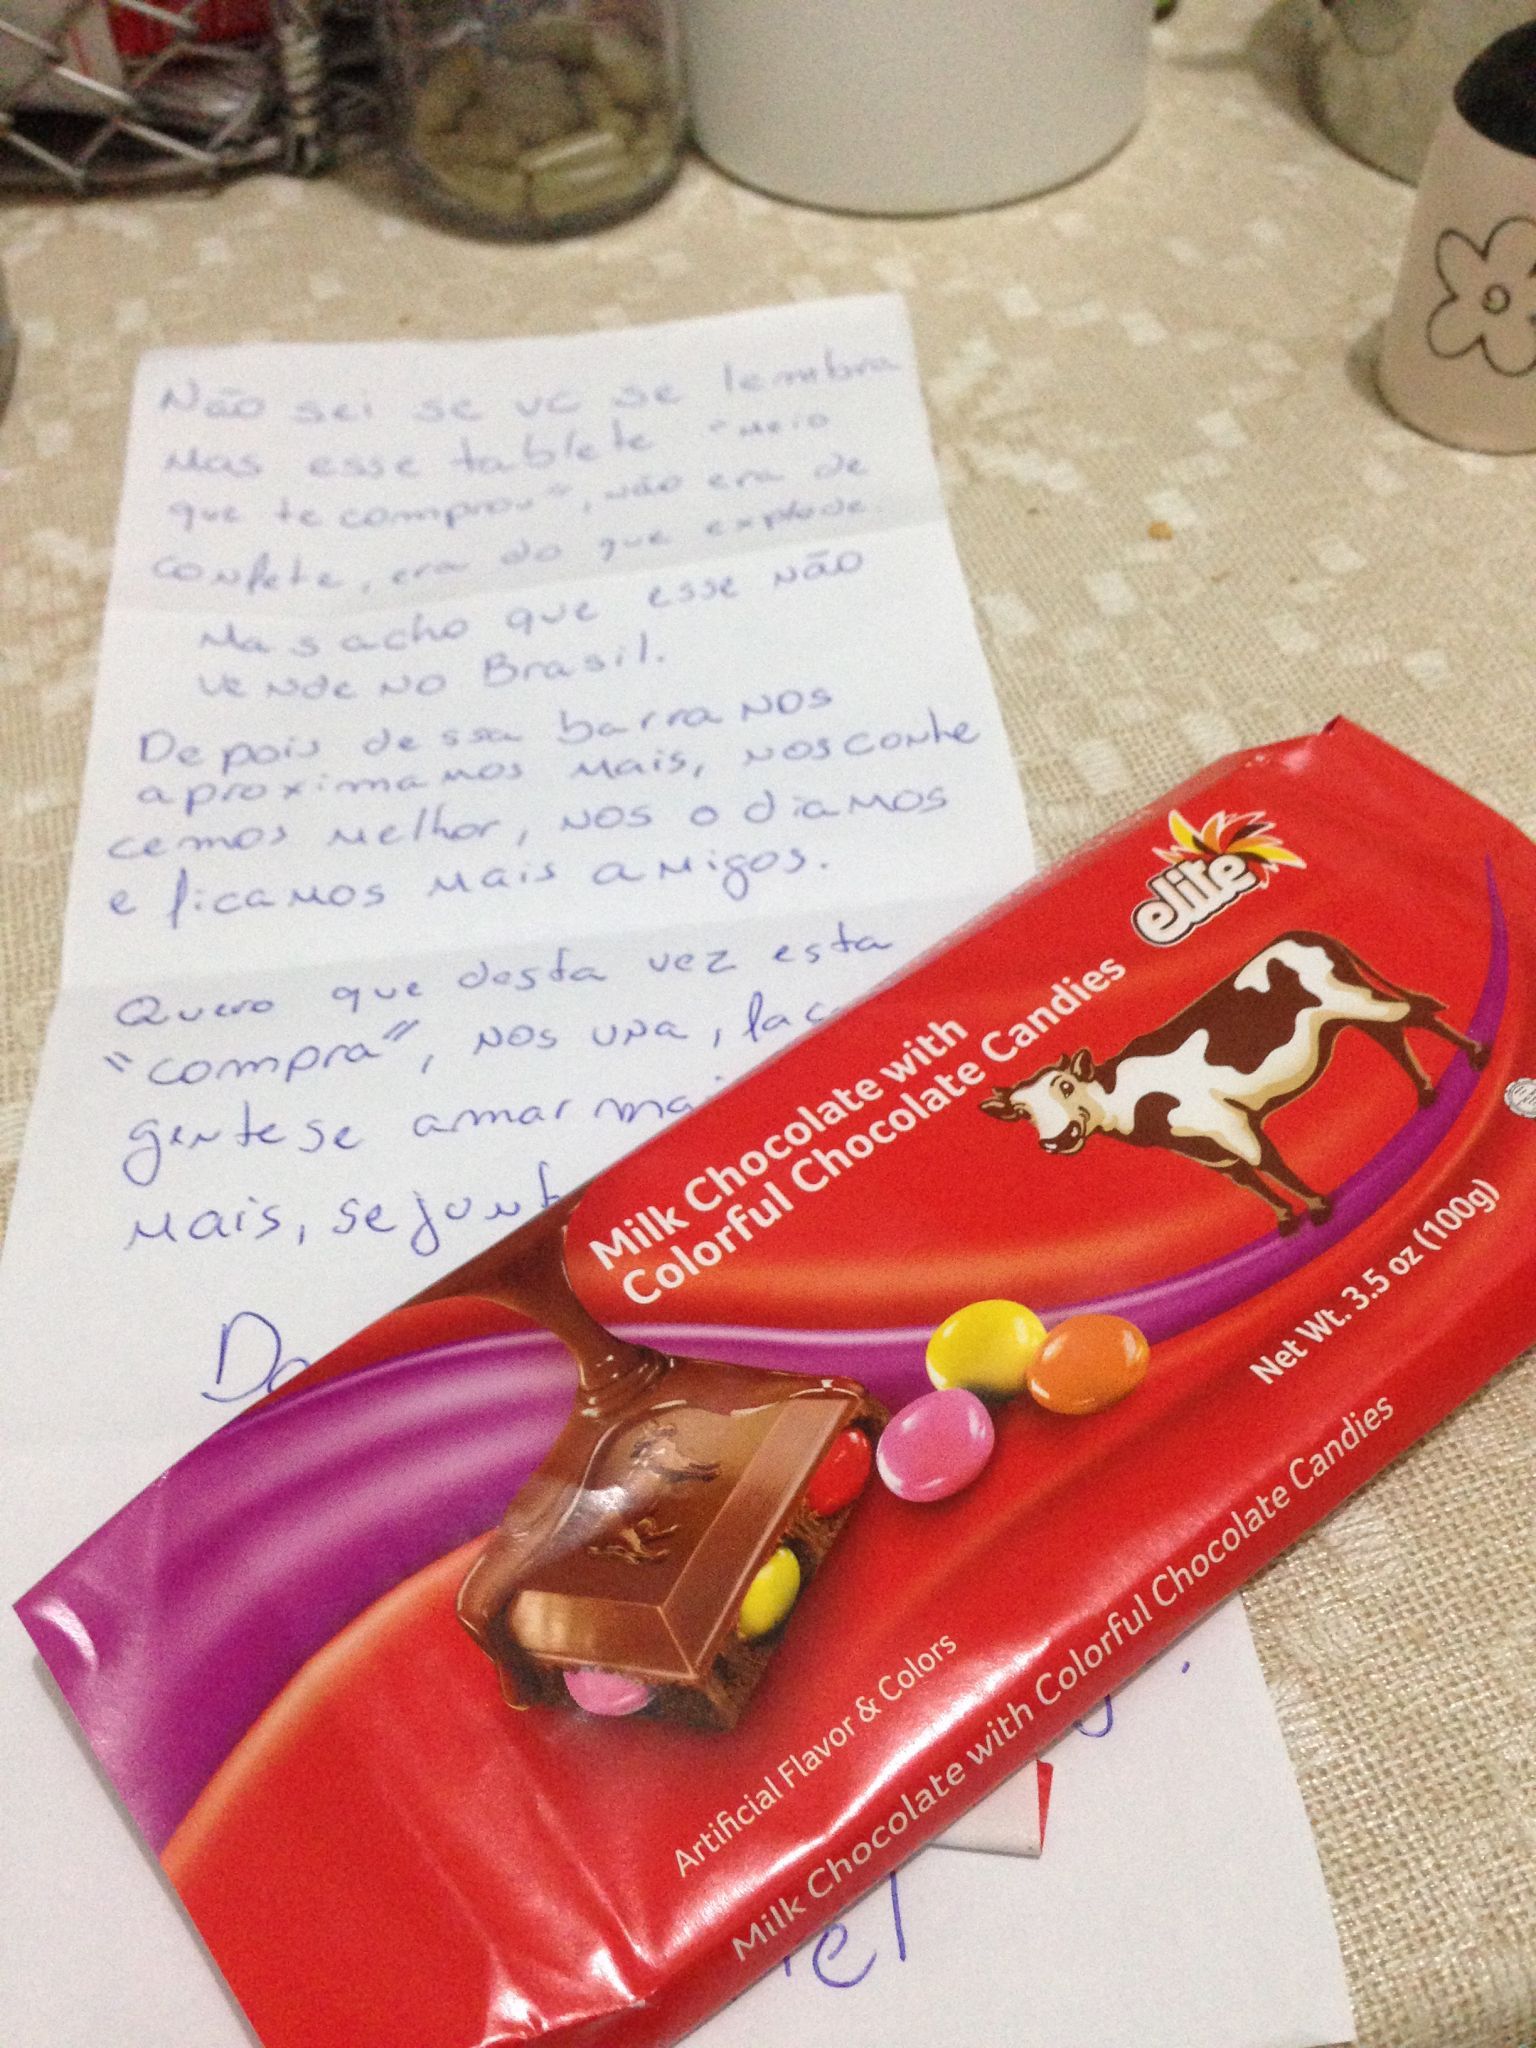 Não sei se vc se lembra
Mas esse tablete "meio
que te comprou", não era de
confete, era do que explode
Mas acho que esse não
vende no Brasil.
Depois dessa barra nos
aproximamos mais, nos conhe
cemos melhor, nos odiamos
e ficamos mais amigos.
Quero que desta vez esta
"compra", nos una, faç
gente se amar ma
mais, se junt
Da
el
elite
Milk Chocolate with
Colorful Chocolate Candies
Net Wt. 3.5 oz (100g)
Artificial Flavor & Colors
Milk Chocolate with Colorful Chocolate Candies